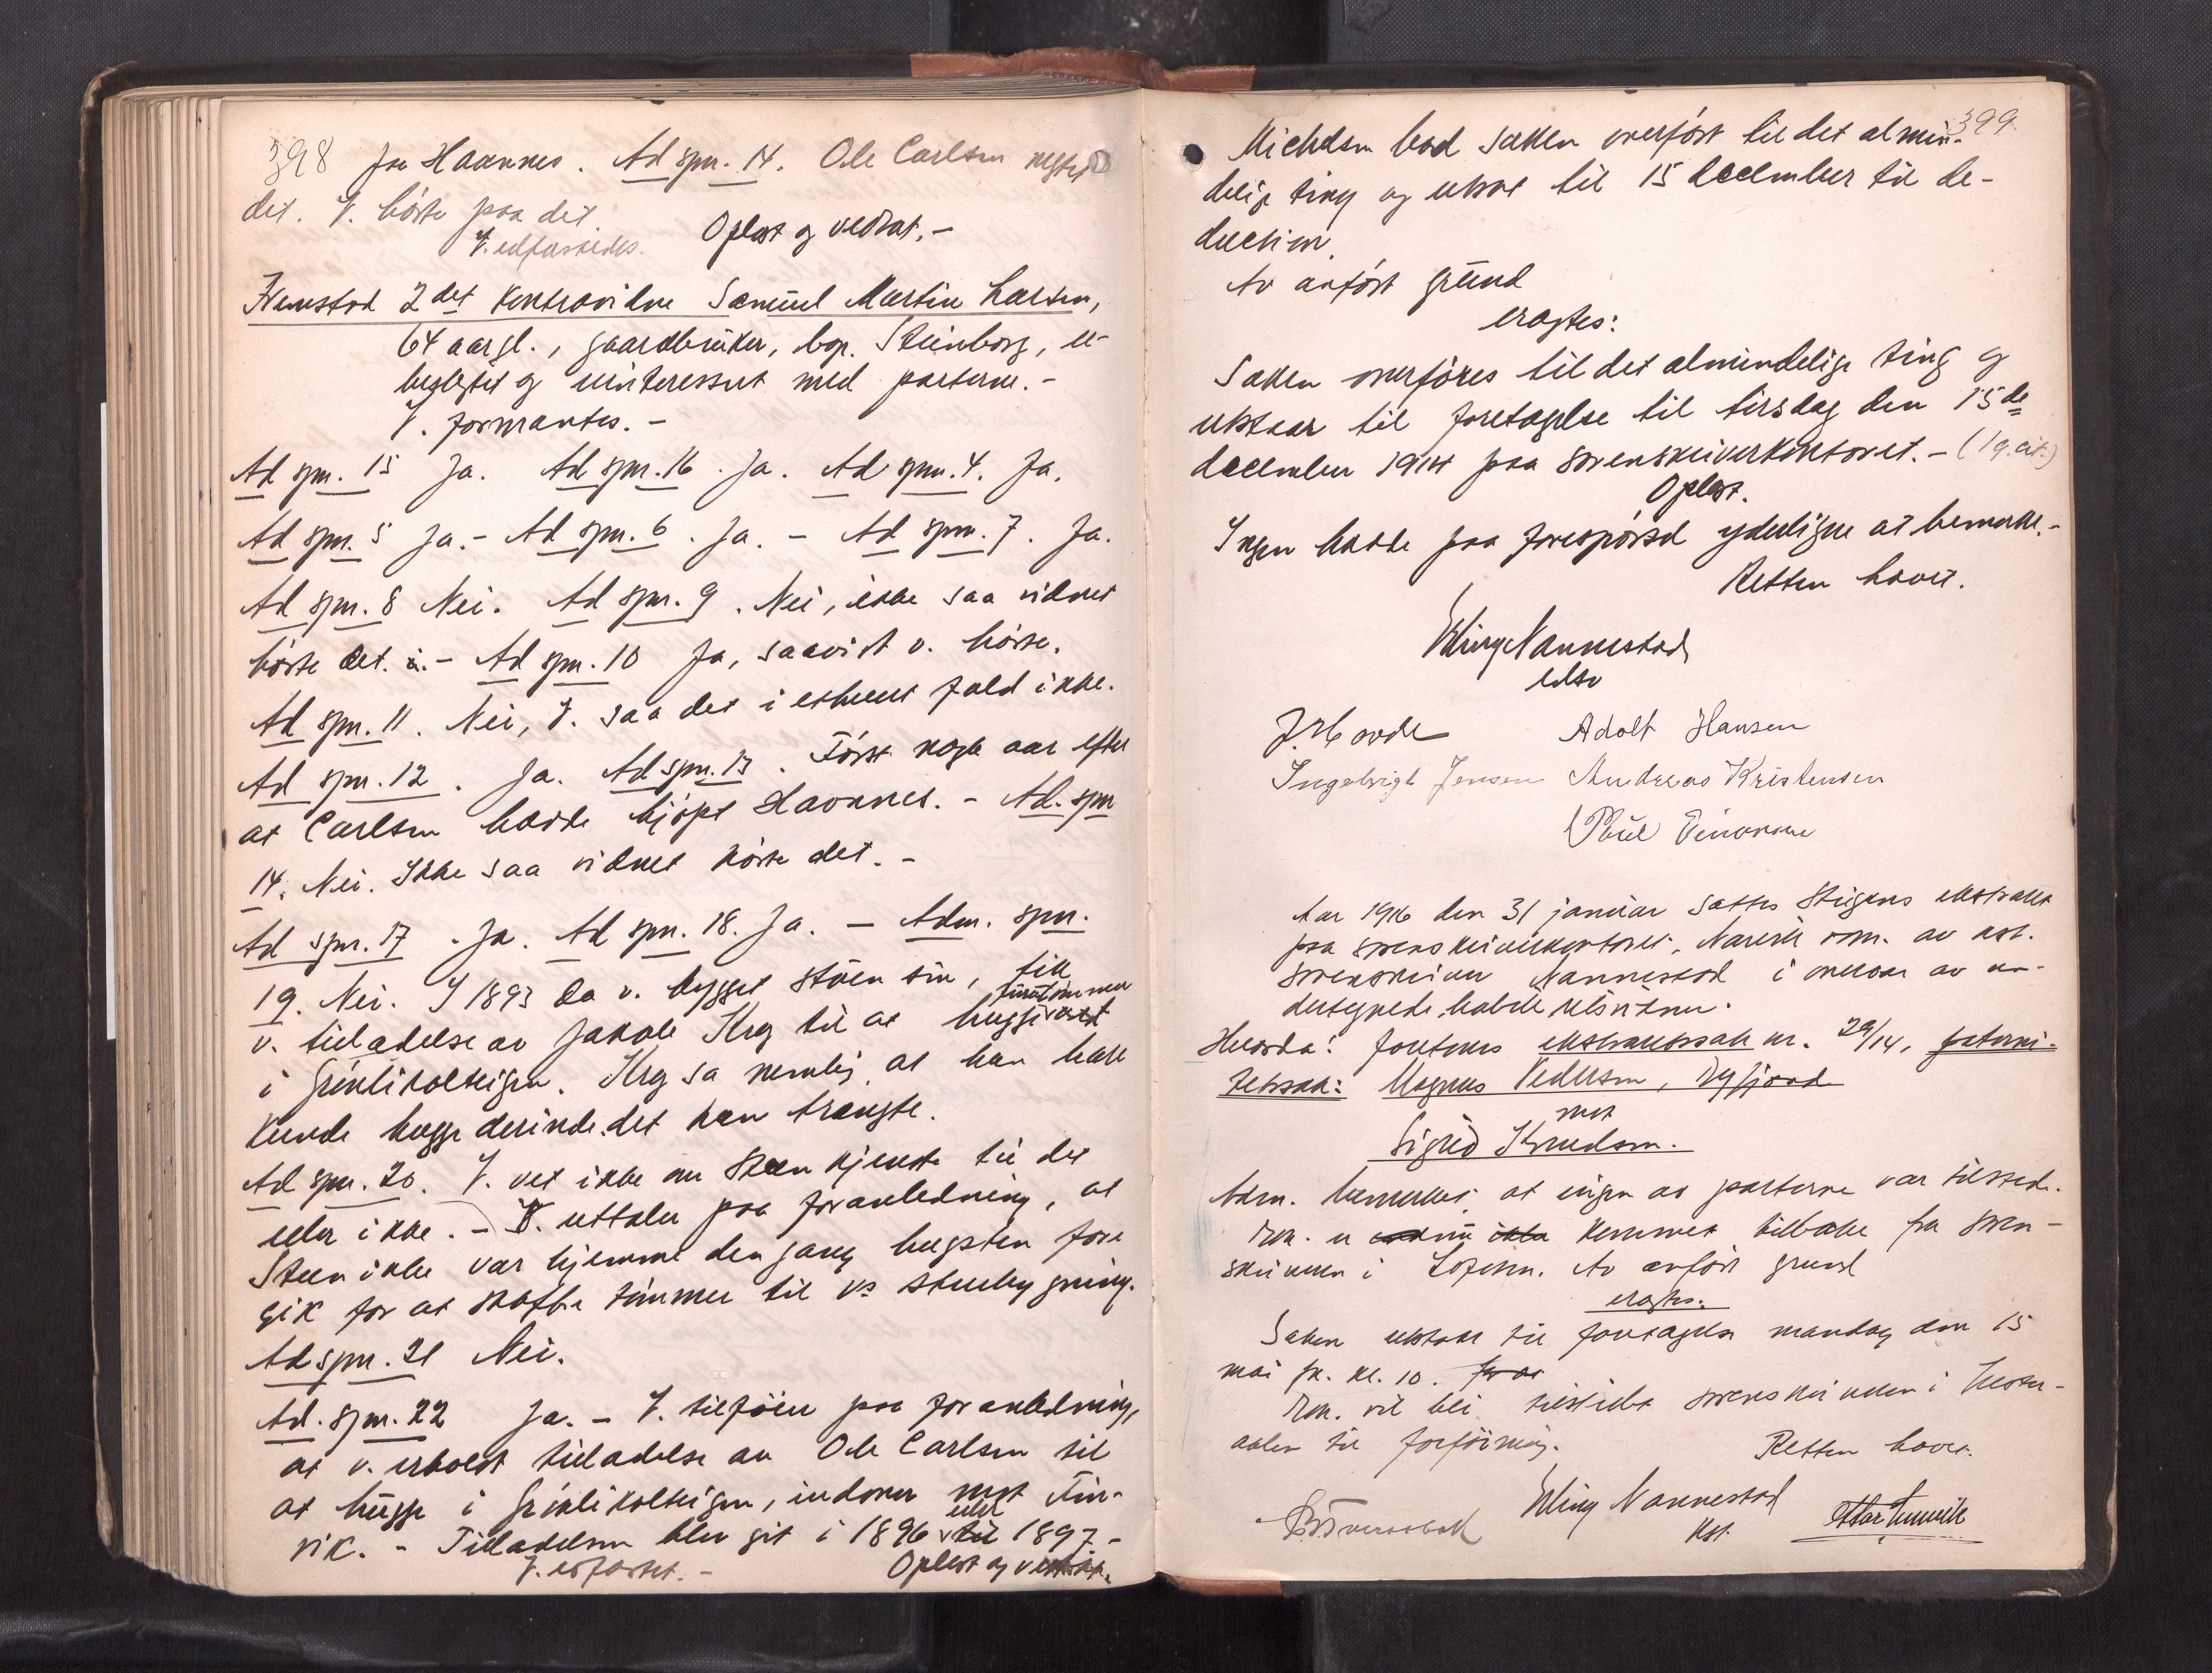 398 paa Haannes. Ad spm. 14. Ole Carlsen negtet
det. V. hörte paa det.
V. edfæstedes. Oplæst og vedtat. -
Fremstod 2det kontravidne Samuel Martin Larsen,
64 aar gl., gaardbruker, bop. Steinborg, u-
beslegtet og uinteressert med parterne. -
V. formantes. -
Ad spm. 15 Ja. Ad spm. 16. Ja. Ad spm. 4. Ja.
Ad spm. 5 Ja. - Ad spm. 6. Ja. - Ad spm. 7. Ja.
Ad spm. 8 Nei. Ad spm. 9. Nei, ikke saa vidnet
hörte det. - Ad spm. 10 Ja, saavidt v. hörte.
Ad spm. 11. Nei, V. saa det i ethvert fald ikke.
Ad spm. 12. Ja. Ad spm. 13. Först nogle aar efter
at Carlsen hadde kjöpt Haannes. - Ad. spm
14. Nei. Ikke saa vidnet hörte det. -
Ad spm. 17. Ja. Ad spm. 18. Ja. - Adm. spm.
19. Nei. I 1893 da v. bygget stuen sin, fik
v. tilladelse av Jakob Krey til at hugge
i Grönlikolteigen. Krey sa nemlig at han bare
kunde hugge derinde det han trængte.
Ad spm. 20. V. vet ikke om Steen kjendte til det
eller ikke. - V. uttaler paa foranledning, at
Steen ikke var hjemme den gang hugsten fore
gik for at skaffe tömmer til vs stuebygning.
Ad spm. 21 Nei.
Ad. spm. 22 Ja. - V. tilföier paa foranledning,
at v. erholdt tilladelse av Ole Carlsen til
at hugge i Grönlikolteigen, indover mot Fin-
vik. - Tilladelsen blev git i 1896 eller 1897. -
V. edfæstet. - Oplæst og vedtat.
399.
Michelsen bad saken overfört til det almin-
delige ting og utsat til 15 december til de-
duction.
Av anfört grund
eragtes:
Saken overföres til det almindelige ting og
utstaar til foretagelse til tirsdag den 15de
december 1914 paa sorenskriverkontoret. -
Oplæst.
Ingen hadde paa forespörsel yderligere at bemerke. -
Retten hævet.
Erling Nannestad
edsv
J. Hovde Adolf Hansen
Ingebrigt Jensen Andreas Kristensen
Poul Einarsen
Aar 1916 den 31 januar sattes Steigens ekstraret
paa sorenskriverkontoret, Narvik adm. av kst.
sorenskriver Nannestad i overvær av un-
dertegnede habile retsvidner.
Hvorda: foretokes ekstraretssak nr. 29/14, paterni-
tetssak: Magnus Pedersen, Dyfjord
mot
Sigrid Knudsen.
Adm. bemerket, at ingen av parterne var tilstede.
Rek. er kommet tilbake fra soren-
skriveren i Lofoten. Av anfört grund
eragtes:
Saken utstaar til foretagelse mandag den 15
mai fk. kl. 10.
Rek. vil bli tilstillet sorenskriveren i Vester-
aalen til forföining.
Retten hævet.
Erling Nannestad
Kst.